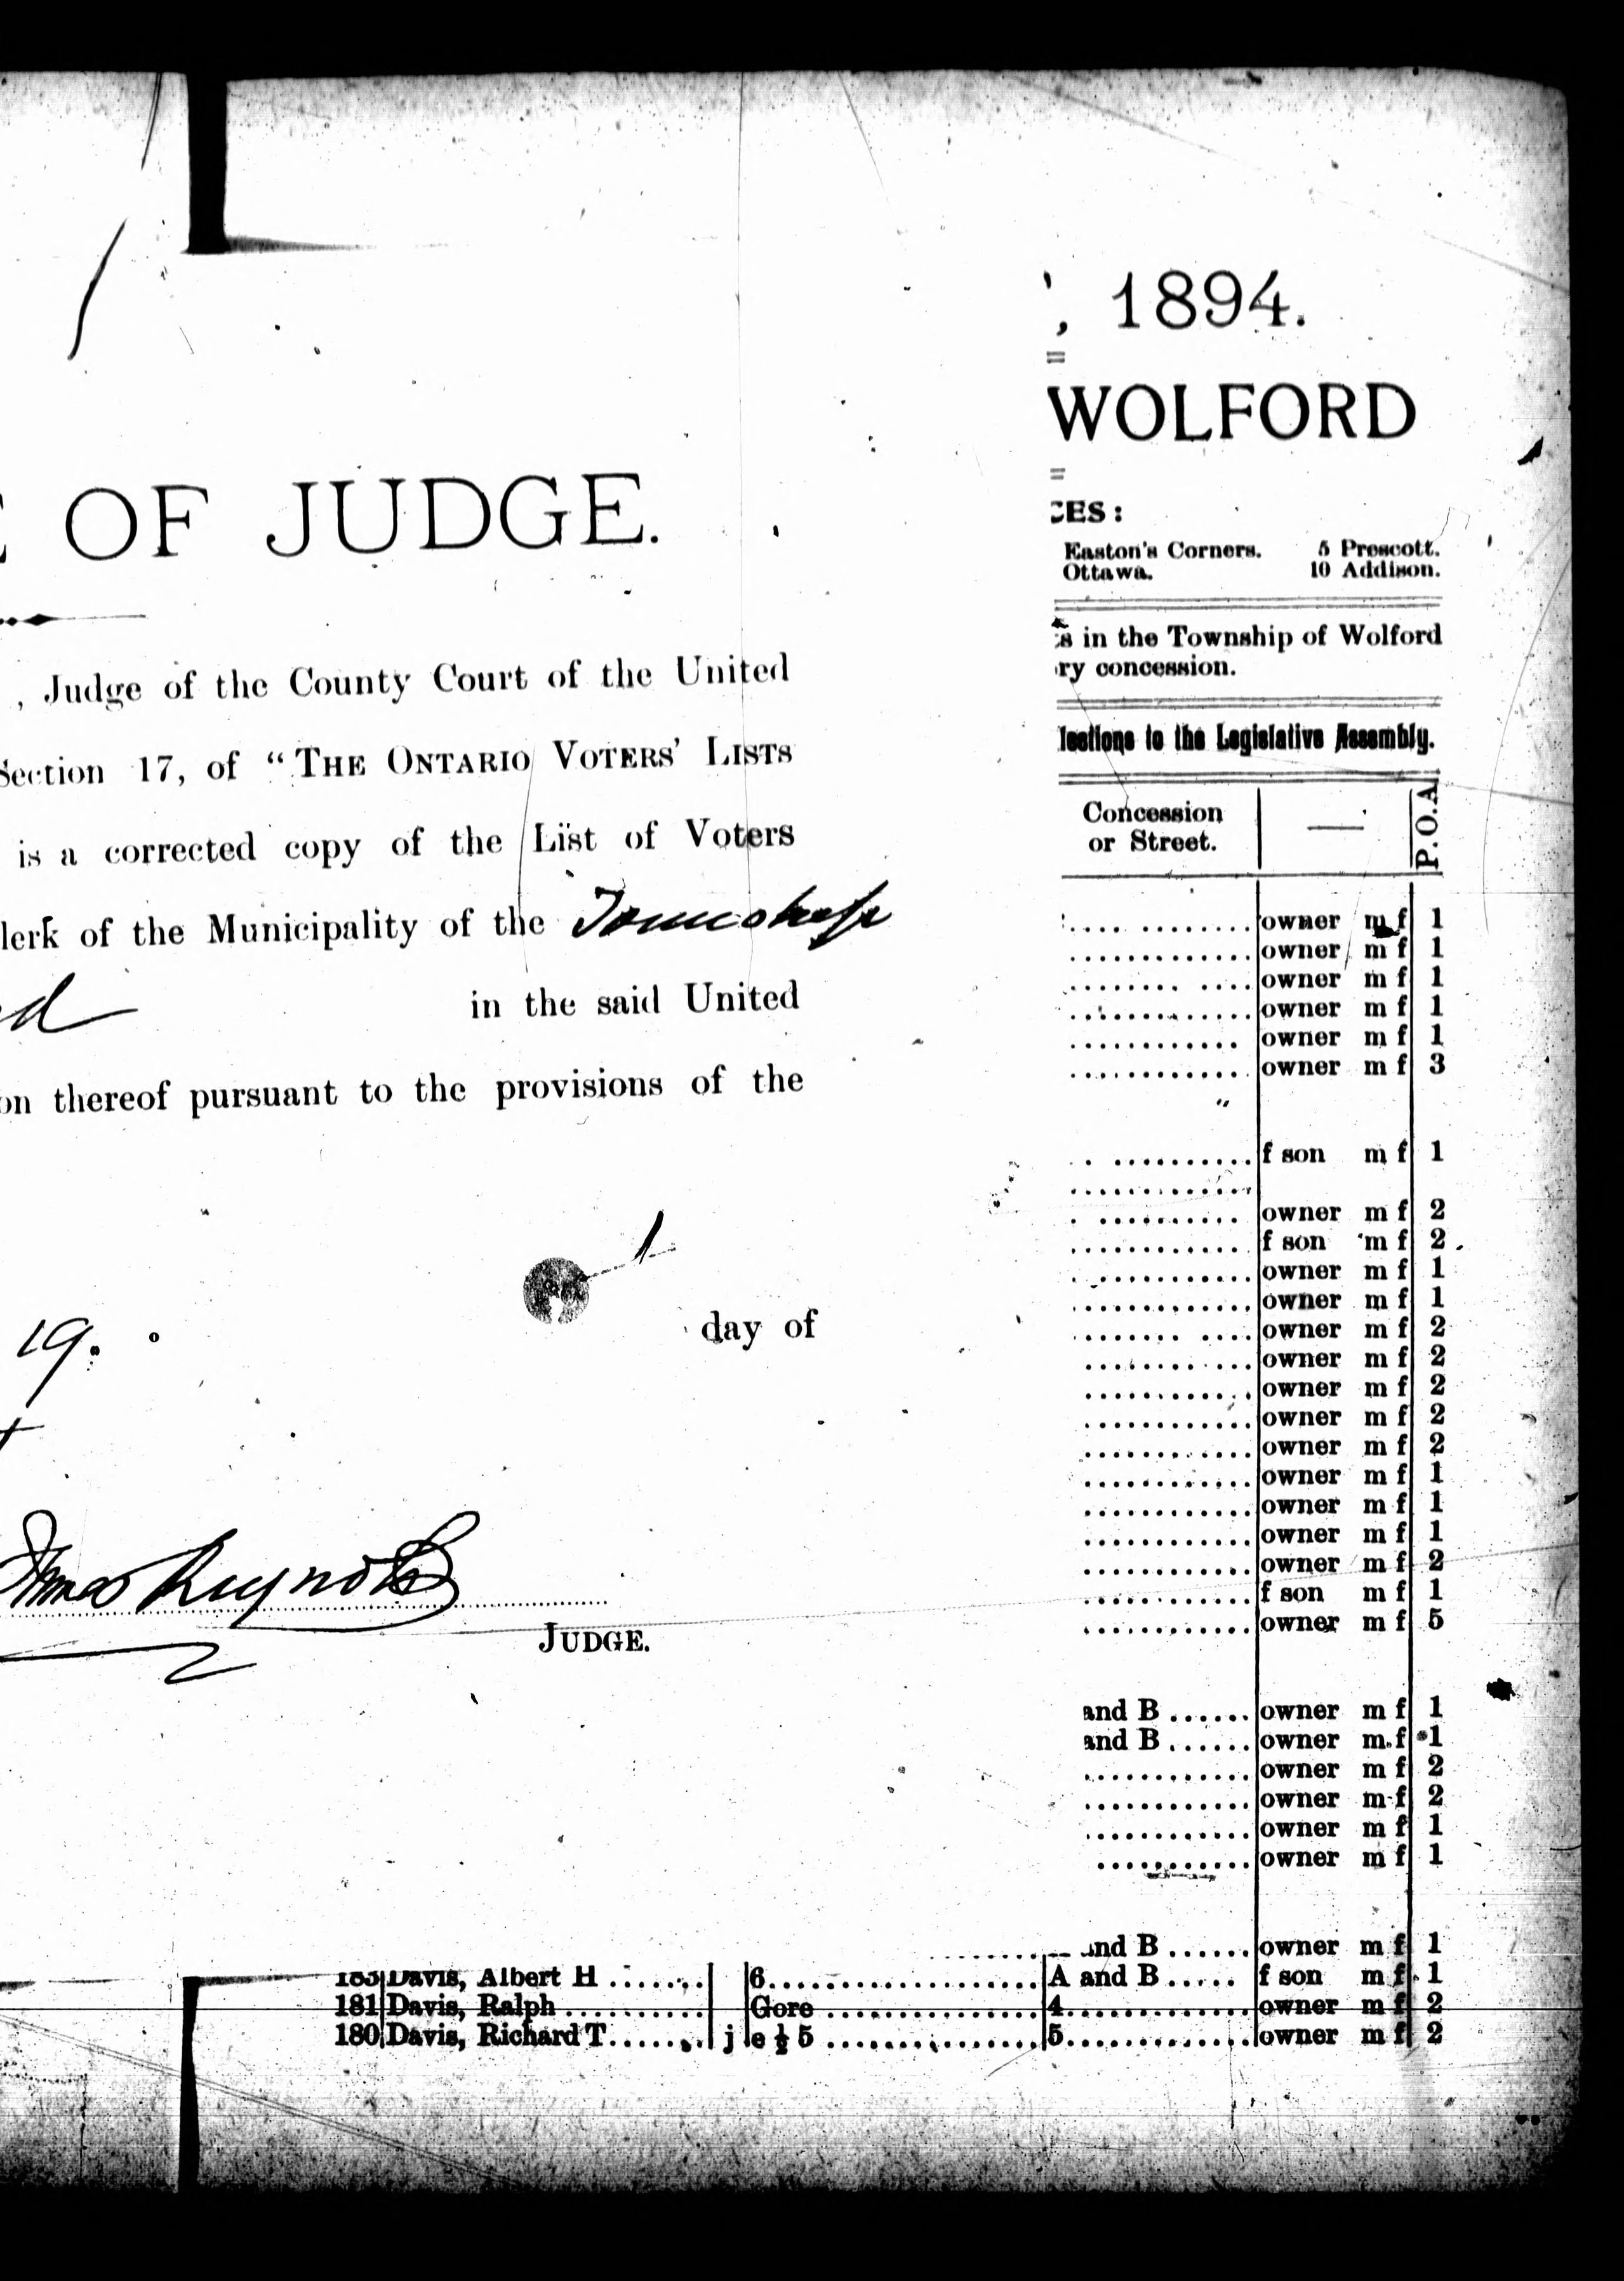 OF JUDGE.
, Judge of the County Court of the United
Section 17, of "THE ONTARIO VOTERS' LISTS
is a corrected copy of the List of Voters
lerk of the Municipality of the Township
in the said United
on thereof pursuant to the provisions of the
19.
day of
Reynolds
JUDGE.
, 1894.
WOLFORD
CES:
Easton's Corners. 5 Prescott.
Ottawa. 10 Addison.
s in the Township of Wolford
ry concession.
lections to the Legislative Assembly.
Concession or Street. — P.O.A
owner m f 1
owner m f 1
owner m f 1
owner m f 1
owner m f 1
owner m f 3
f son m f 1
owner m f 2
f son m f 2
owner m f 1
owner m f 1
owner m f 2
owner m f 2
owner m f 2
owner m f 2
owner m f 2
owner m f 1
owner m f 1
owner m f 1
owner m f 2
f son m f 1
owner m f 5
and B ...... owner m f 1
and B ...... owner m f 1
owner m f 2
owner m f 2
owner m f 1
owner m f 1
nd B ...... owner m f 1
183 Davis, Albert H ....... 6 ....... A and B ..... f son m f 1
181 Davis, Ralph ....... Gore ....... 4 ....... owner m f 2
180 Davis, Richard T ....... j e ½ 5 ....... 5 ....... owner m f 2